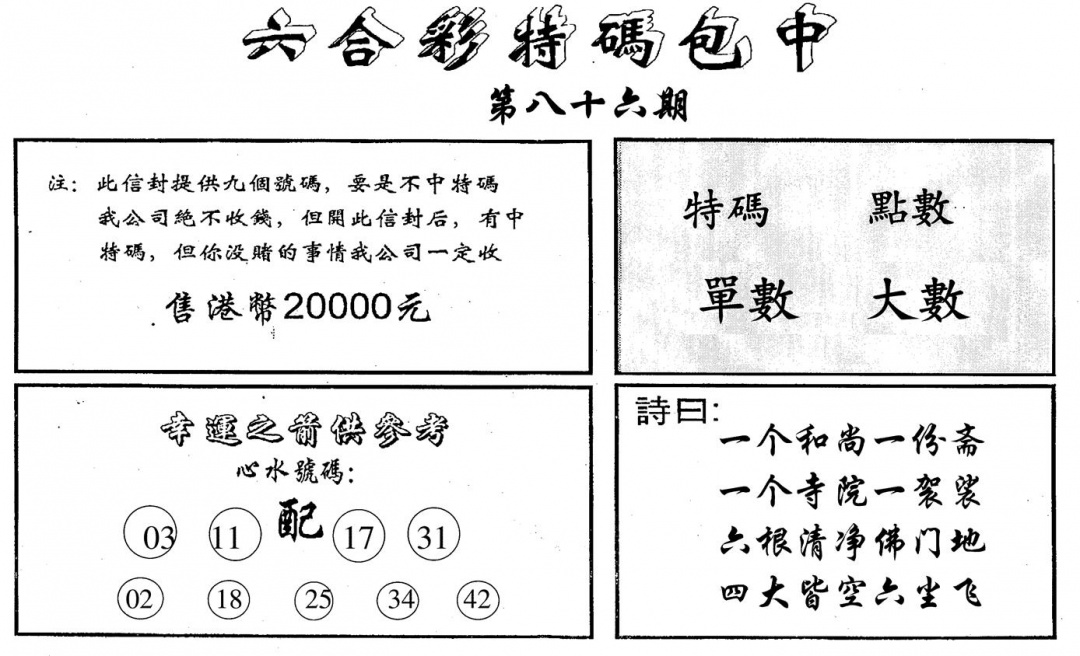 六合彩特碼包中
第八十六期
注：此信封提供九個號碼，要是不中特碼
我公司絕不收錢，但開此信封后，有中
特碼，但你没賭的事情我公司一定收
售港幣20000元
特碼 點數
單數 大數
幸運之箭供參考
心水號碼：
03 11 配 17 31
02 18 25 34 42
詩曰：
一个和尚一份斋
一个寺院一袈裟
六根清净佛门地
四大皆空六尘飞